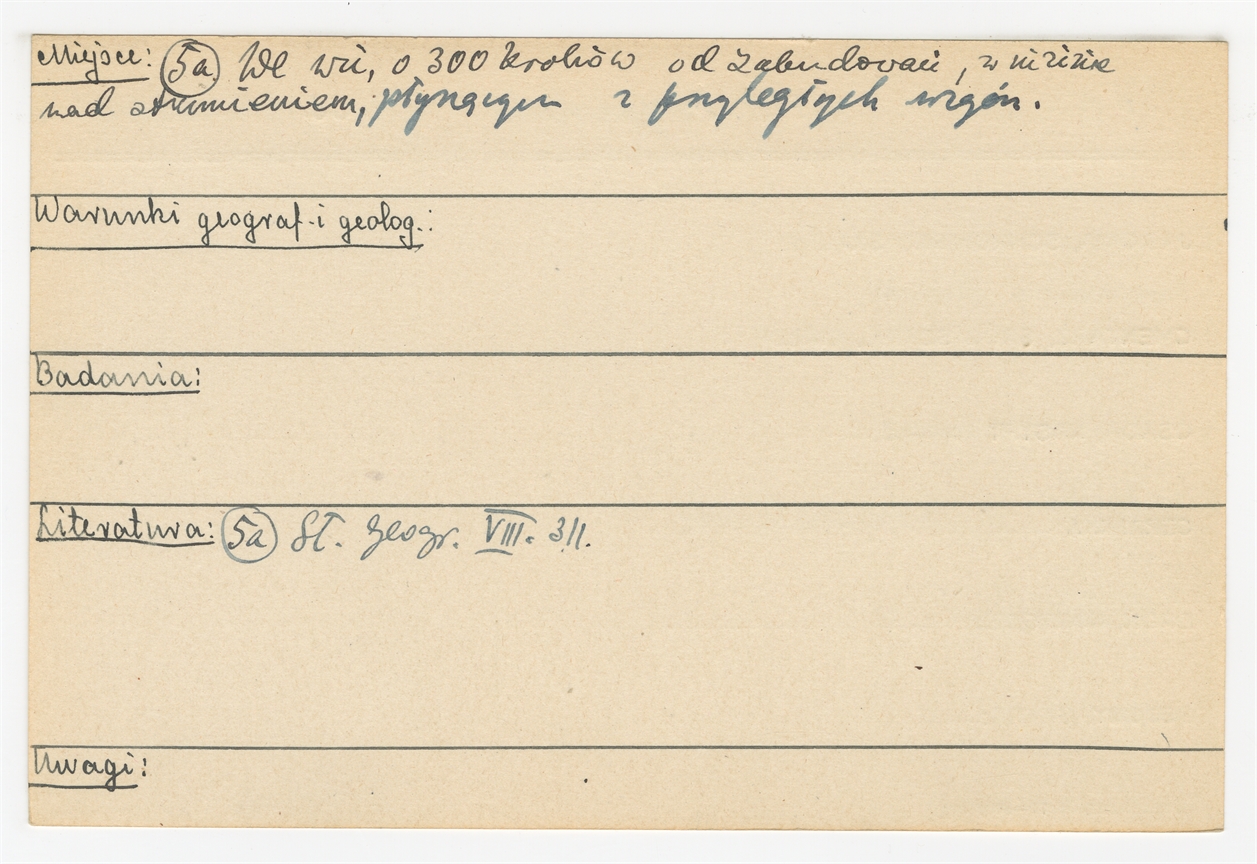 Miejsce: 5a We wsi, o 300 kroków od zabudowań, w nizinie
nad strumieniem, płynącym z przyległych wzgórz.
Warunki geograf. i geolog.:
Badania:
Literatura: 5a Sł. geogr. VIII. 311.
Uwagi: